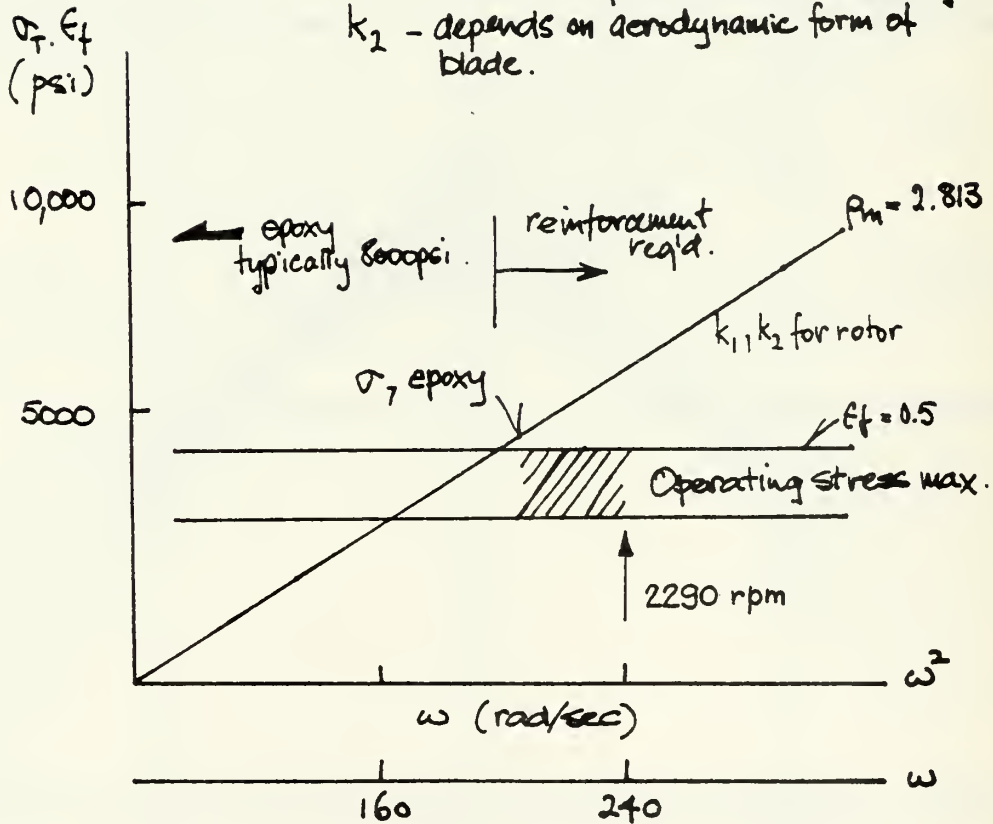 k₂ - depends on aerodynamic form of
blade.
σ_T. ϵ_f
(psi)
10,000
epoxy
typically 8000psi.
reinforcement
req'd.
ρ_m = 2.813
k₁, k₂ for rotor
σ, epoxy
5000
ϵ_f = 0.5
Operating stress max.
2290 rpm
ω²
ω (rad/sec)
ω
160
240